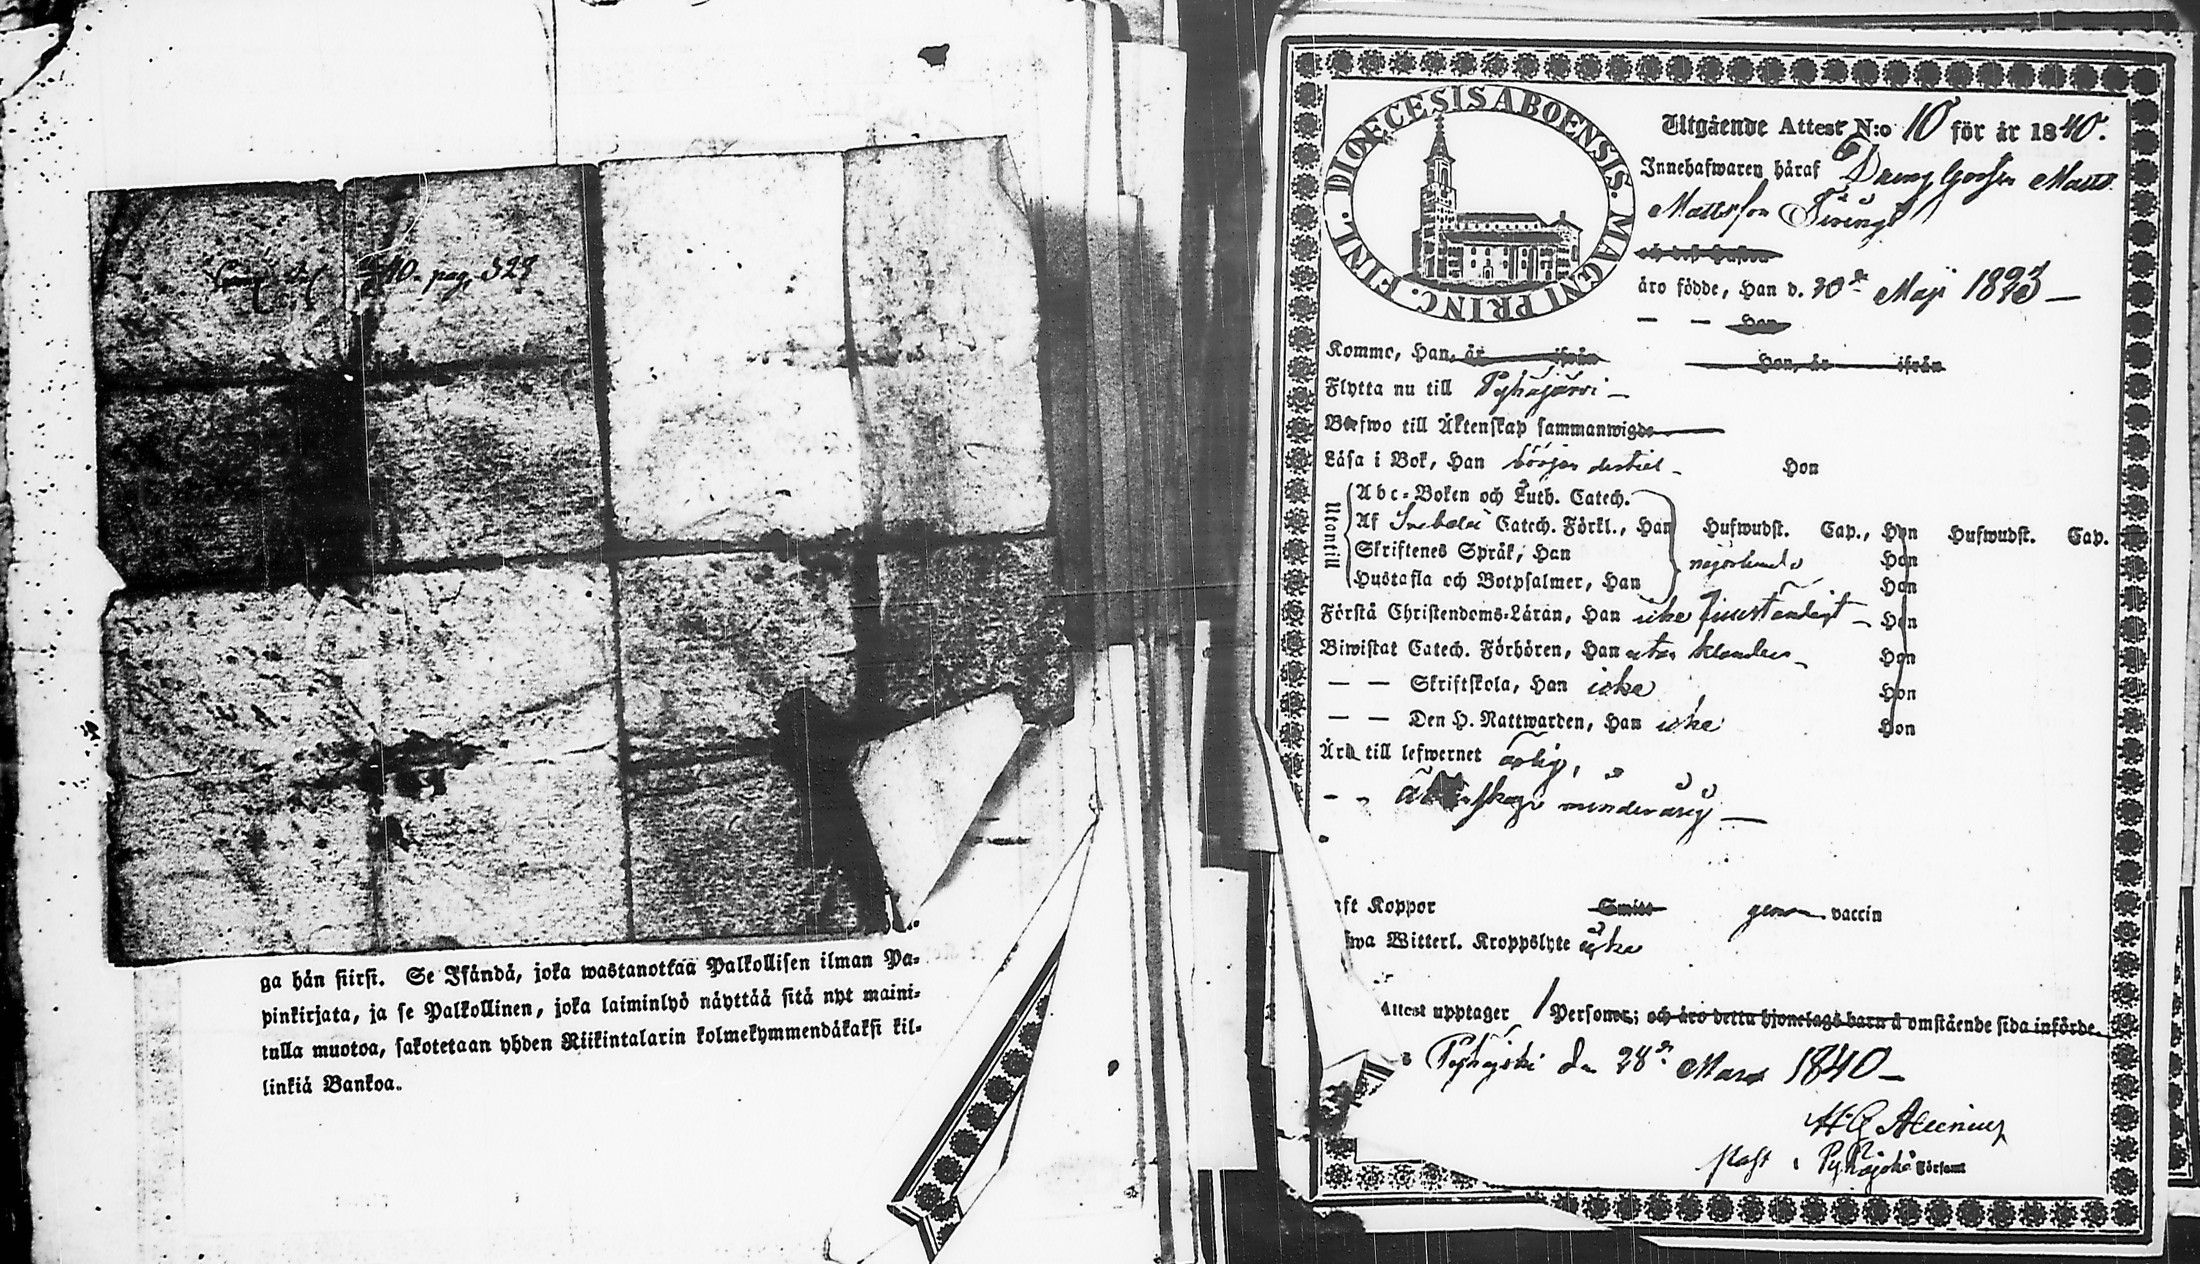 40. pag. 328
ga hån siirsi. Se Isåndå, joka wastanottaa Palkollisen ilman Pa-
pinkirjata, ja se Palkollinen, joka laiminlyö nåyttåå sitå nyt maini-
tulla muotoa, sakotetaan yhden Riikintalarin kolmekymmendåkaksi kil-
linkiå Bankoa.
DIOECESIS ABOENSIS. MAGNI PRINC. FINL.
Utgående Attest N:o 10 för år 1840.
Innehafwaren håraf Dräng Gossen Matts
Mattsson
äro födde, Han d. 20de Maji 1823 —
— — Hon
Komme, Han, år ifrån Hon, år ifrån
Flytta nu till Pyhäjärvi —
Blefwo till Äktenskap sammanwigde
Läsa i Bok, Han börjar Hon
Utantill
Abc-Boken och Luth. Catech.
Af Svebelii Catech. Förkl., Han Hufwudst. Cap., Hon Hufwudst. Cap.
Skriftenes Språk, Han någorlunda Hon
Hustafla och Botpsalmer, Han Hon
Förstå Christendoms-Läran, Han icke fullständigt — Hon
Biwistat Catech. Förhören, Han utan klander — Hon
— — Skriftskola, Han icke Hon
— — Den H. Nattwarden, Han icke Hon
Äro till lefwernet ärlig,
— — äktenskap minderårig —
aft Koppor Smitt genom vaccin
fwa Witterl. Kroppslyte icke
Attest upptager 1 Personer; och äro dettu hjonelags barn å omstående sida införde.
Pyhäjoki d. 28de Mars 1840 —
Past i Pyhäjoki Församl